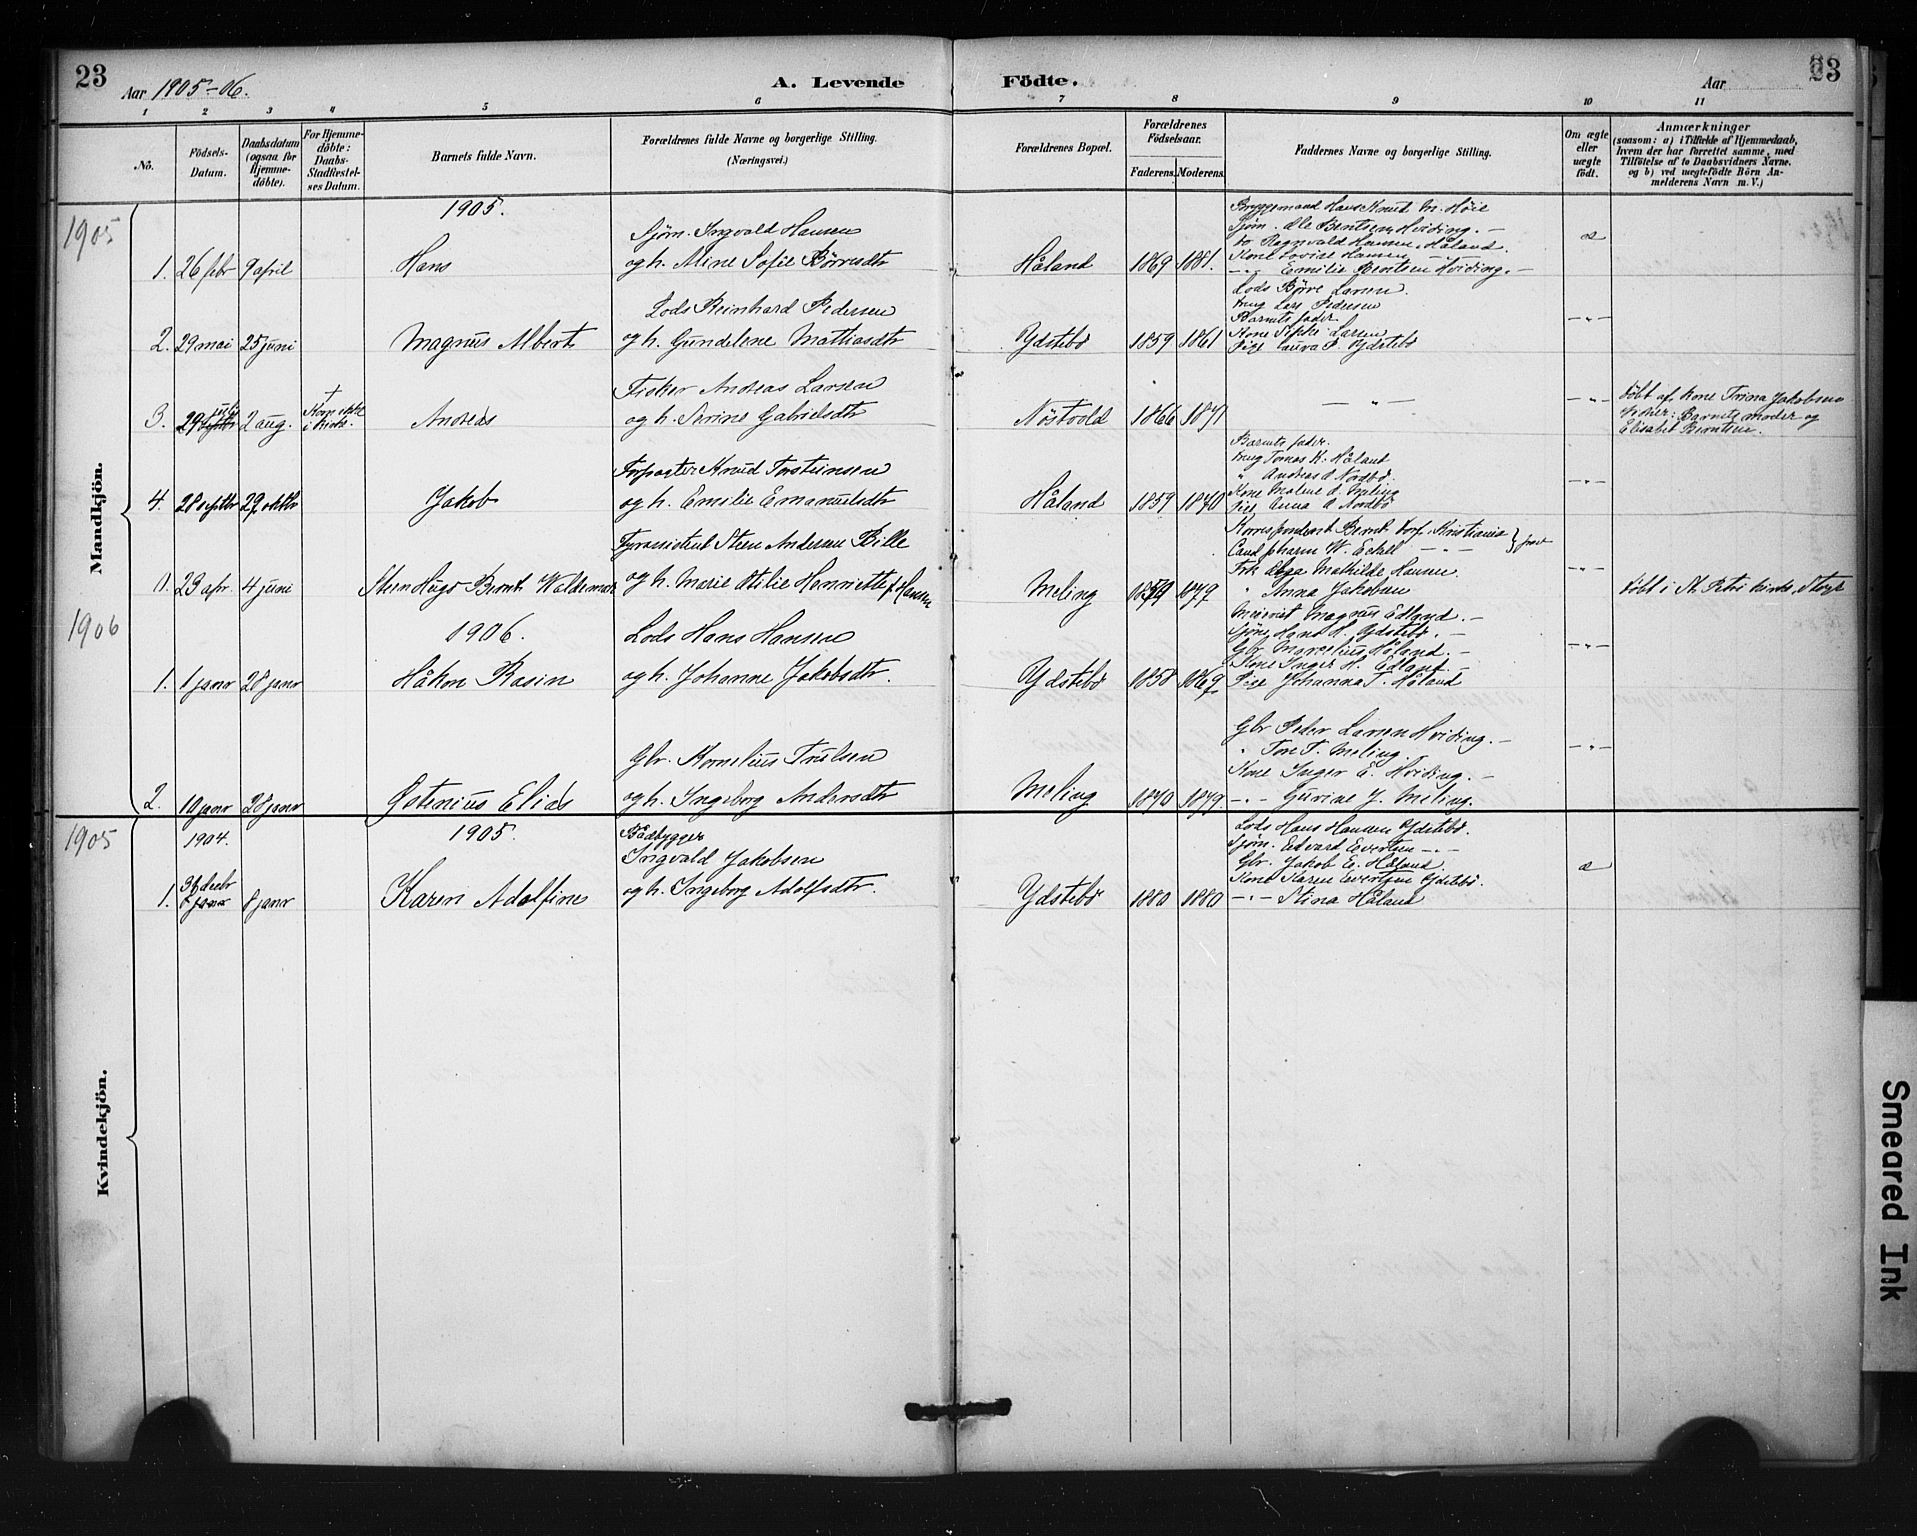 23
Aar 1905-06.
A. Levende Födte.
Aar
23
1 2 3 4 5 6 7 8 9 10 11
No.
Födsels-Datum.
Daabsdatum (ogsaa for Hjemme-döbte).
For Hjemme-döbte: Daabs-Stadfæstel-ses Datum.
Barnets fulde Navn.
Forældrenes fulde Navne og borgerlige Stilling. (Næringsvei.)
Forældrenes Bopæl.
Forældrenes Födselsaar.
Faderens. Moderens.
Faddernes Navne og borgerlige Stilling.
Om ægte eller uægte födt.
Anmærkninger
(saasom: a) i Tilfælde af Hjemmedaab, hvem der har forrettet samme, med Tilföielse af to Daabsvidners Navne. og b) ved uægtefödte Börn An-melderens Navn m. V.)
Mandkjön.
1905
1905.
1. 26 febr 9 april
Hans
Sjöm. Ingvald Hansen
og h. Aline Sofie Børresdtr
Håland 1869 1881.
Bryggemand Hans Knud M. Höie
Sjöm. Ole Bentsen Hviding. —
do Ragnvald Hansen Håland.
Kone Lovise Hansen —
—"— Emilie Berntsen Hviding. —
æ
2. 29 mai 25 juni
Magnus Albert
Lods Reinhard Pedersen
og h. Gundelene Mathiasdtr
Ydstebö 1859 1861
Lods Börre Larsen.
Ung Lars Pedersen
Barnets fader
Kone Larsen
Pige Laura P. Ydstebö
—"—
3. 29 juli 2 aug.
+ Kom ikke i kirke.
Andreas
Fisker Andreas Larsen
og h. Serine Gabrielsdtr
Nöstvold 1866 1871
— " —
—"—
Döbt af Kone Trina Jakobsen
Vidner: Barnets moder og
Elisabet Berntsen.
4. 28 septbr 29 oktbr
Jakob
Forpagter Knud Torsteinsen
og h. Emilie Emanuelsdtr
Håland 1859 1870
Barnets fader.
Ung Tomas K. Håland
" Andreas A. Nordbö
Kone Malene A. Meling
Pige Anna A Nordbö
—"—
0. 23 apr. 4 juni
Steen Hugo Bernt Waldemar
Fyrassistent Steen Andersen Bille
og h. Marie Otilie Henriette f. Hansen
Meling 1879
Korrespondent Bernt Kristiania
Cand pharm W. Eckell —"—
Frk Olga Mathilde Hansen.
" Anna Jakobsen
—"—
Döbt i St. Petri kirke, Stvgr
1906
1906.
1. 1 janr 28 janr
Håkon Rasin
Lods Hans Hansen
og h. Johanne Jakobsdtr.
Ydstebö 1858 1867
Magnus Edland. —
Sjöm. Hans H. Ydstebö. —
Gbr Marselius Håland. —
Kone Inger H. Edland. —
Pige Johanna T. Håland
—"—
2. 10 janr 28 janr
Østenius Elias
Gbr. Kornelius Trulsen
og h. Ingeborg Andersdtr
Meling 1870 1879.
Gbr Peder Larsen Hviding. —
" Tore T. Meling.
Kone Inger E. Hviding. —
—"— Gurine J. Meling.
—"—
Kvindekjön.
1905
1904.
1905.
1. 31 decbr 8 janr
Karen Adolfine
Bådbygger
Ingvald Jakobsen
og h. Ingeborg Adolfsdtr.
Ydstebö 1880 1880
Lods Hans Hansen Ydstebö.
Sjöm. Edvard Evertsen —"—
Gbr. Jakob E. Håland
Kone Karen Evertsen Ydstebö.
—"— Stina Håland
æ
Smeared Ink